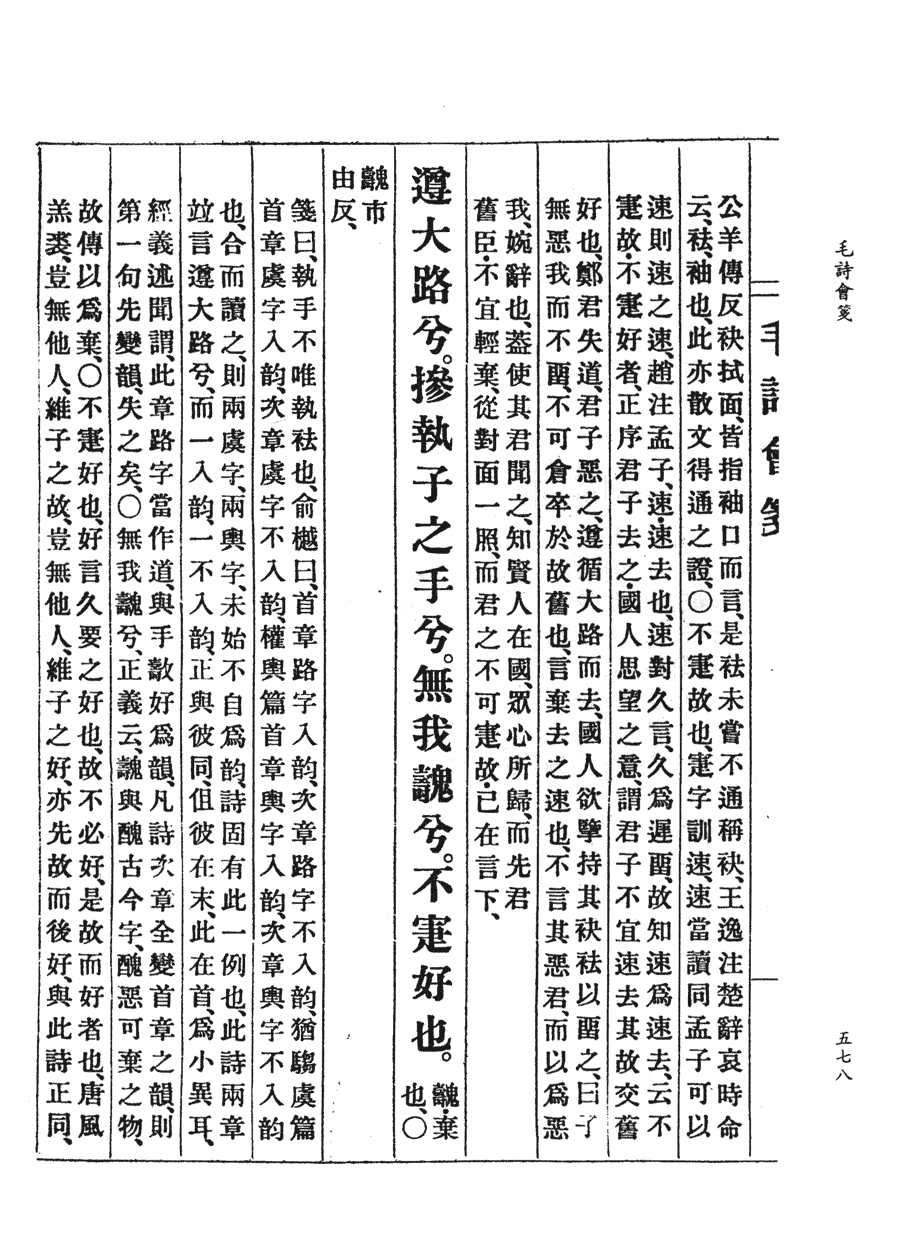 毛詩會箋
五七八
毛詩會箋
公羊傳反袂拭面、皆指袖口而言、是袪未嘗不通稱袂、王逸注楚辭哀時命
云、袪、袖也、此亦散文得通之證、〇不寁故也、寁字訓速、速當讀同孟子可以
速則速之速、趙注孟子、速・速去也、速對久言、久爲遲畱、故知速爲速去、云不
寁故・不寁好者、正序君子去之・國人思望之意、謂君子不宜速去其故交舊
好也、鄭君失道、君子惡之、遵循大路而去、國人欲孥持其袂袪以畱之、曰子
無惡我而不畱、不可倉卒於故舊也、言棄去之速也、不言其惡君、而以爲惡
我、婉辭也、葢使其君聞之、知賢人在國、眾心所歸、而先君
舊臣・不宜輕棄、從對面一照、而君之不可寁故・已在言下、
遵大路兮。摻執子之手兮。無我魗兮。不寁好也。
魗・棄
也、〇
魗市
由反、
箋曰、執手不唯執袪也、俞樾曰、首章路字入韵、次章路字不入韵、猶騶虞篇
首章虞字入韵、次章虞字不入韵、權輿篇首章輿字入韵、次章輿字不入韵
也、合而讀之、則兩虞字、兩輿字、未始不自爲韵、詩固有此一例也、此詩兩章
竝言遵大路兮、而一入韵、一不入韵、正與彼同、但彼在末、此在首、爲小異耳、
經義述聞謂、此章路字當作道、與手魗好爲韻、凡詩次章全變首章之韻、則
第一句先變韻、失之矣、〇無我魗兮、正義云、魗與醜古今字、醜惡可棄之物、
故傳以爲棄、〇不寁好也、好言久要之好也、故不必好、是故而好者也、唐風
羔裘、豈無他人、維子之故、豈無他人、維子之好、亦先故而後好、與此詩正同、